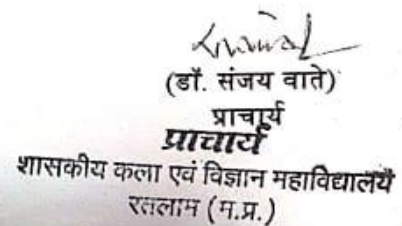 (डॉ. संजय वाते)
प्राचार्य
प्राचार्य
शासकीय कला एवं विज्ञान महाविद्यालय
रतलाम (म.प्र.)